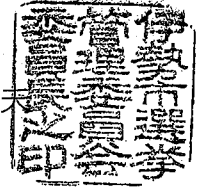 伊勢市選挙
管理委員会
委員長之印
夫